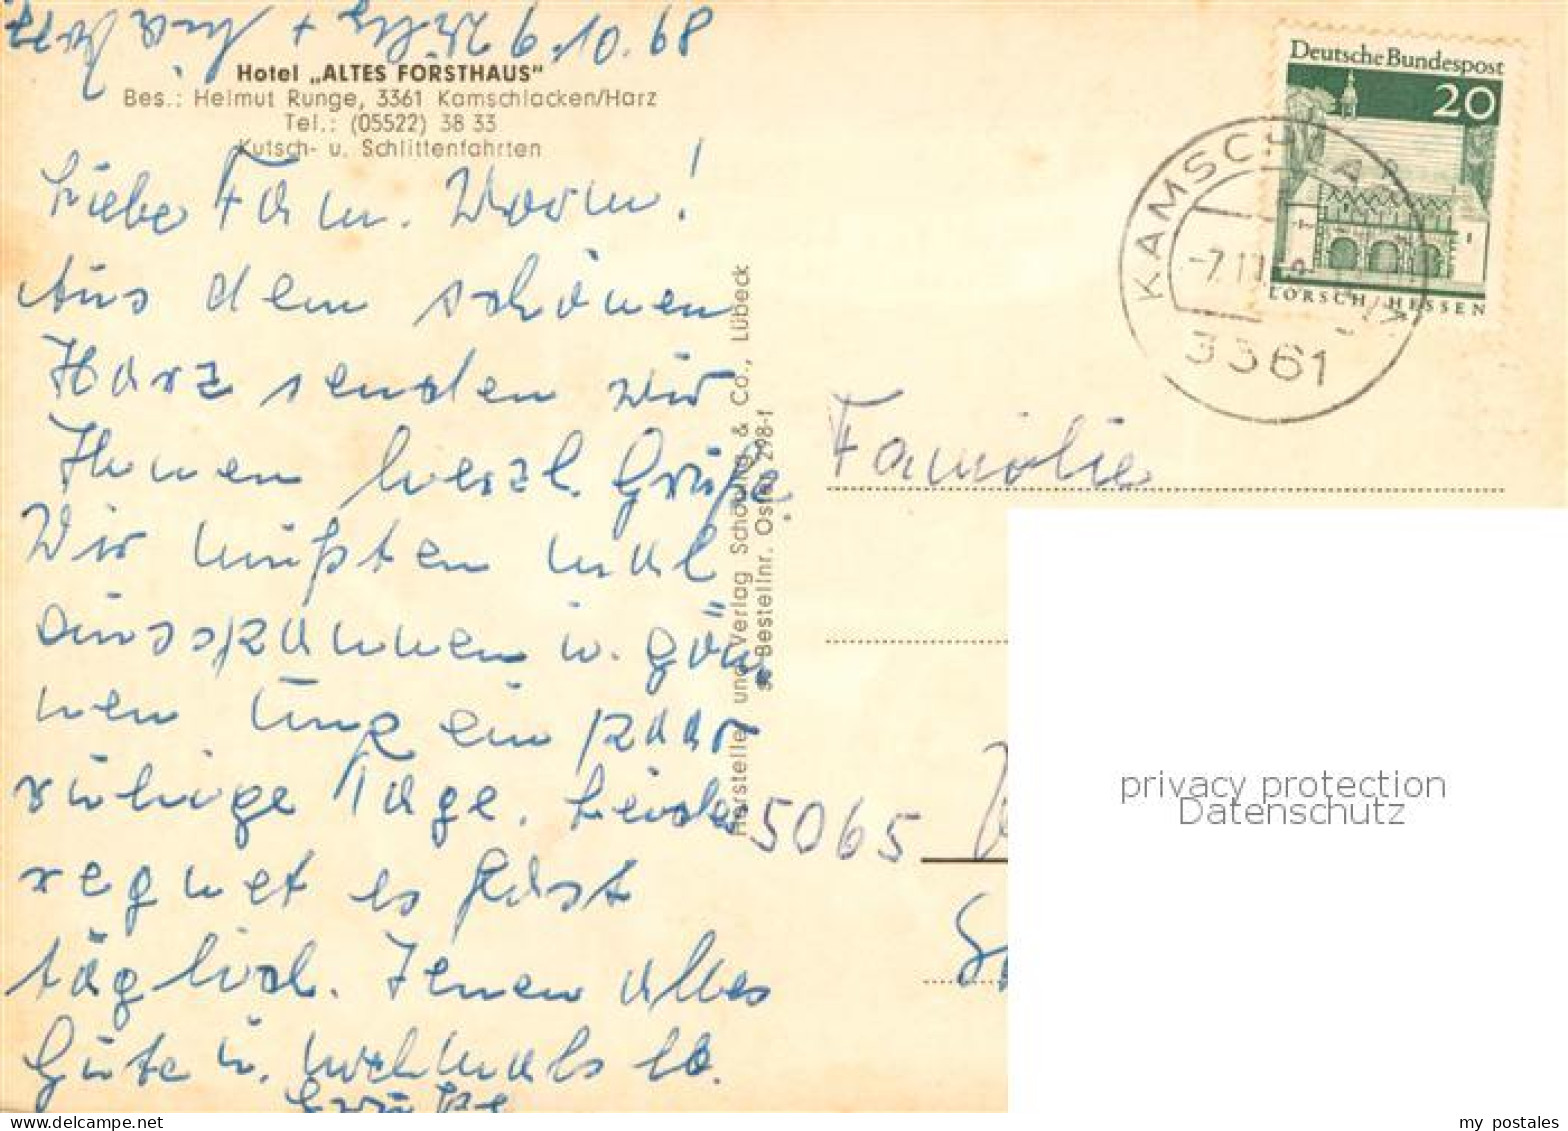 6.10.68
Hotel „ALTES FORSTHAUS"
Bes.: Helmut Runge, 3361 Kamschlacken/Harz
Tel.: (05522) 38 33
Kutsch- u. Schlittenfahrten
Liebe Fam. Worm!
Aus dem schönen
Harz senden wir
Ihnen herzl. Grüße
Wir mußten mal
ausspannen u. gön
nen uns ein paar
ruhige Tage. Leider
regnet es fast
täglich. Ihnen alles
Gute u. nochmals lb.
Grüße
Hersteller und Verlag Schöning & Co., Lübeck
Bestellnr. Oster 298-f
Deutsche Bundespost
20
LORSCH/HESSEN
KAMSCHLA
-7.11
3361
Familie
5065
privacy protection
Datenschutz
my postales